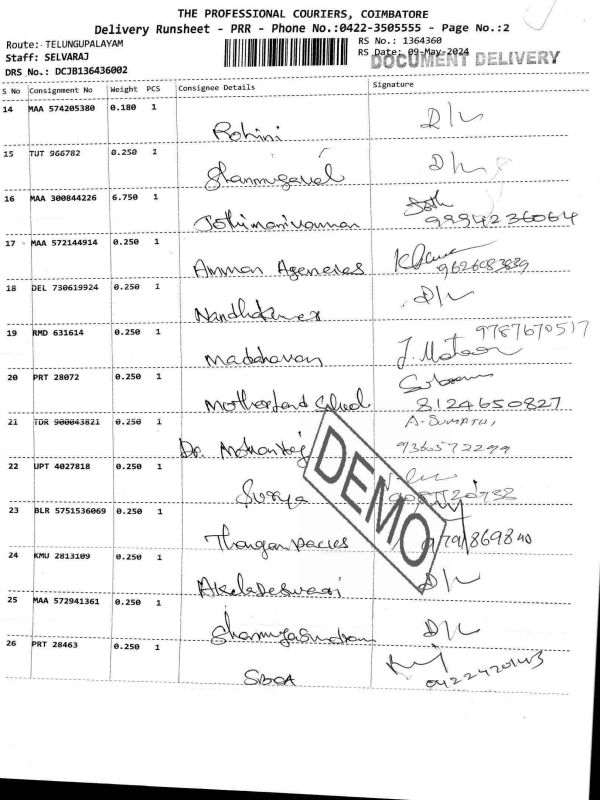 THE PROFESSIONAL COURIERS, COIMBATORE
Delivery Runsheet - PRR - Phone No.:0422-3505555 - Page No.:2
Route: TELUNGUPALAYAM
RS No.: 1364360
Staff: SELVARAJ
RS Date: 09-May-2024
DOCUMENT DELIVERY
DRS No.: DCJB136436002
S No Consignment No Weight PCS Consignee Details Signature
14 MAA 574205380 0.180 1
Rohini D/L
15 TUT 966782 0.250 1
Shanmugavel D/L
16 MAA 300844226 6.750 1
Jothimanivannan 9994236064
17 MAA 572144914 0.250 1
Amman Agencies 9626083839
18 DEL 730619924 0.250 1
Nandhakumar D/L
19 RMD 631614 0.250 1
9787670517
Madhavan
20 PRT 28072 0.250 1
Motherland School 8124650827
21 TDR 900043821 0.250 1
Dr. Mohanraj 9360572299
22 UPT 4027818 0.250 1
Surya
23 BLR 5751536069 0.250 1
Thangan Pacies
24 KMU 2813109 0.250 1
Akeladeswari D/L
25 MAA 572941361 0.250 1
Shanmugasundram D/L
26 PRT 28463 0.250 1
SBOA
DEMO